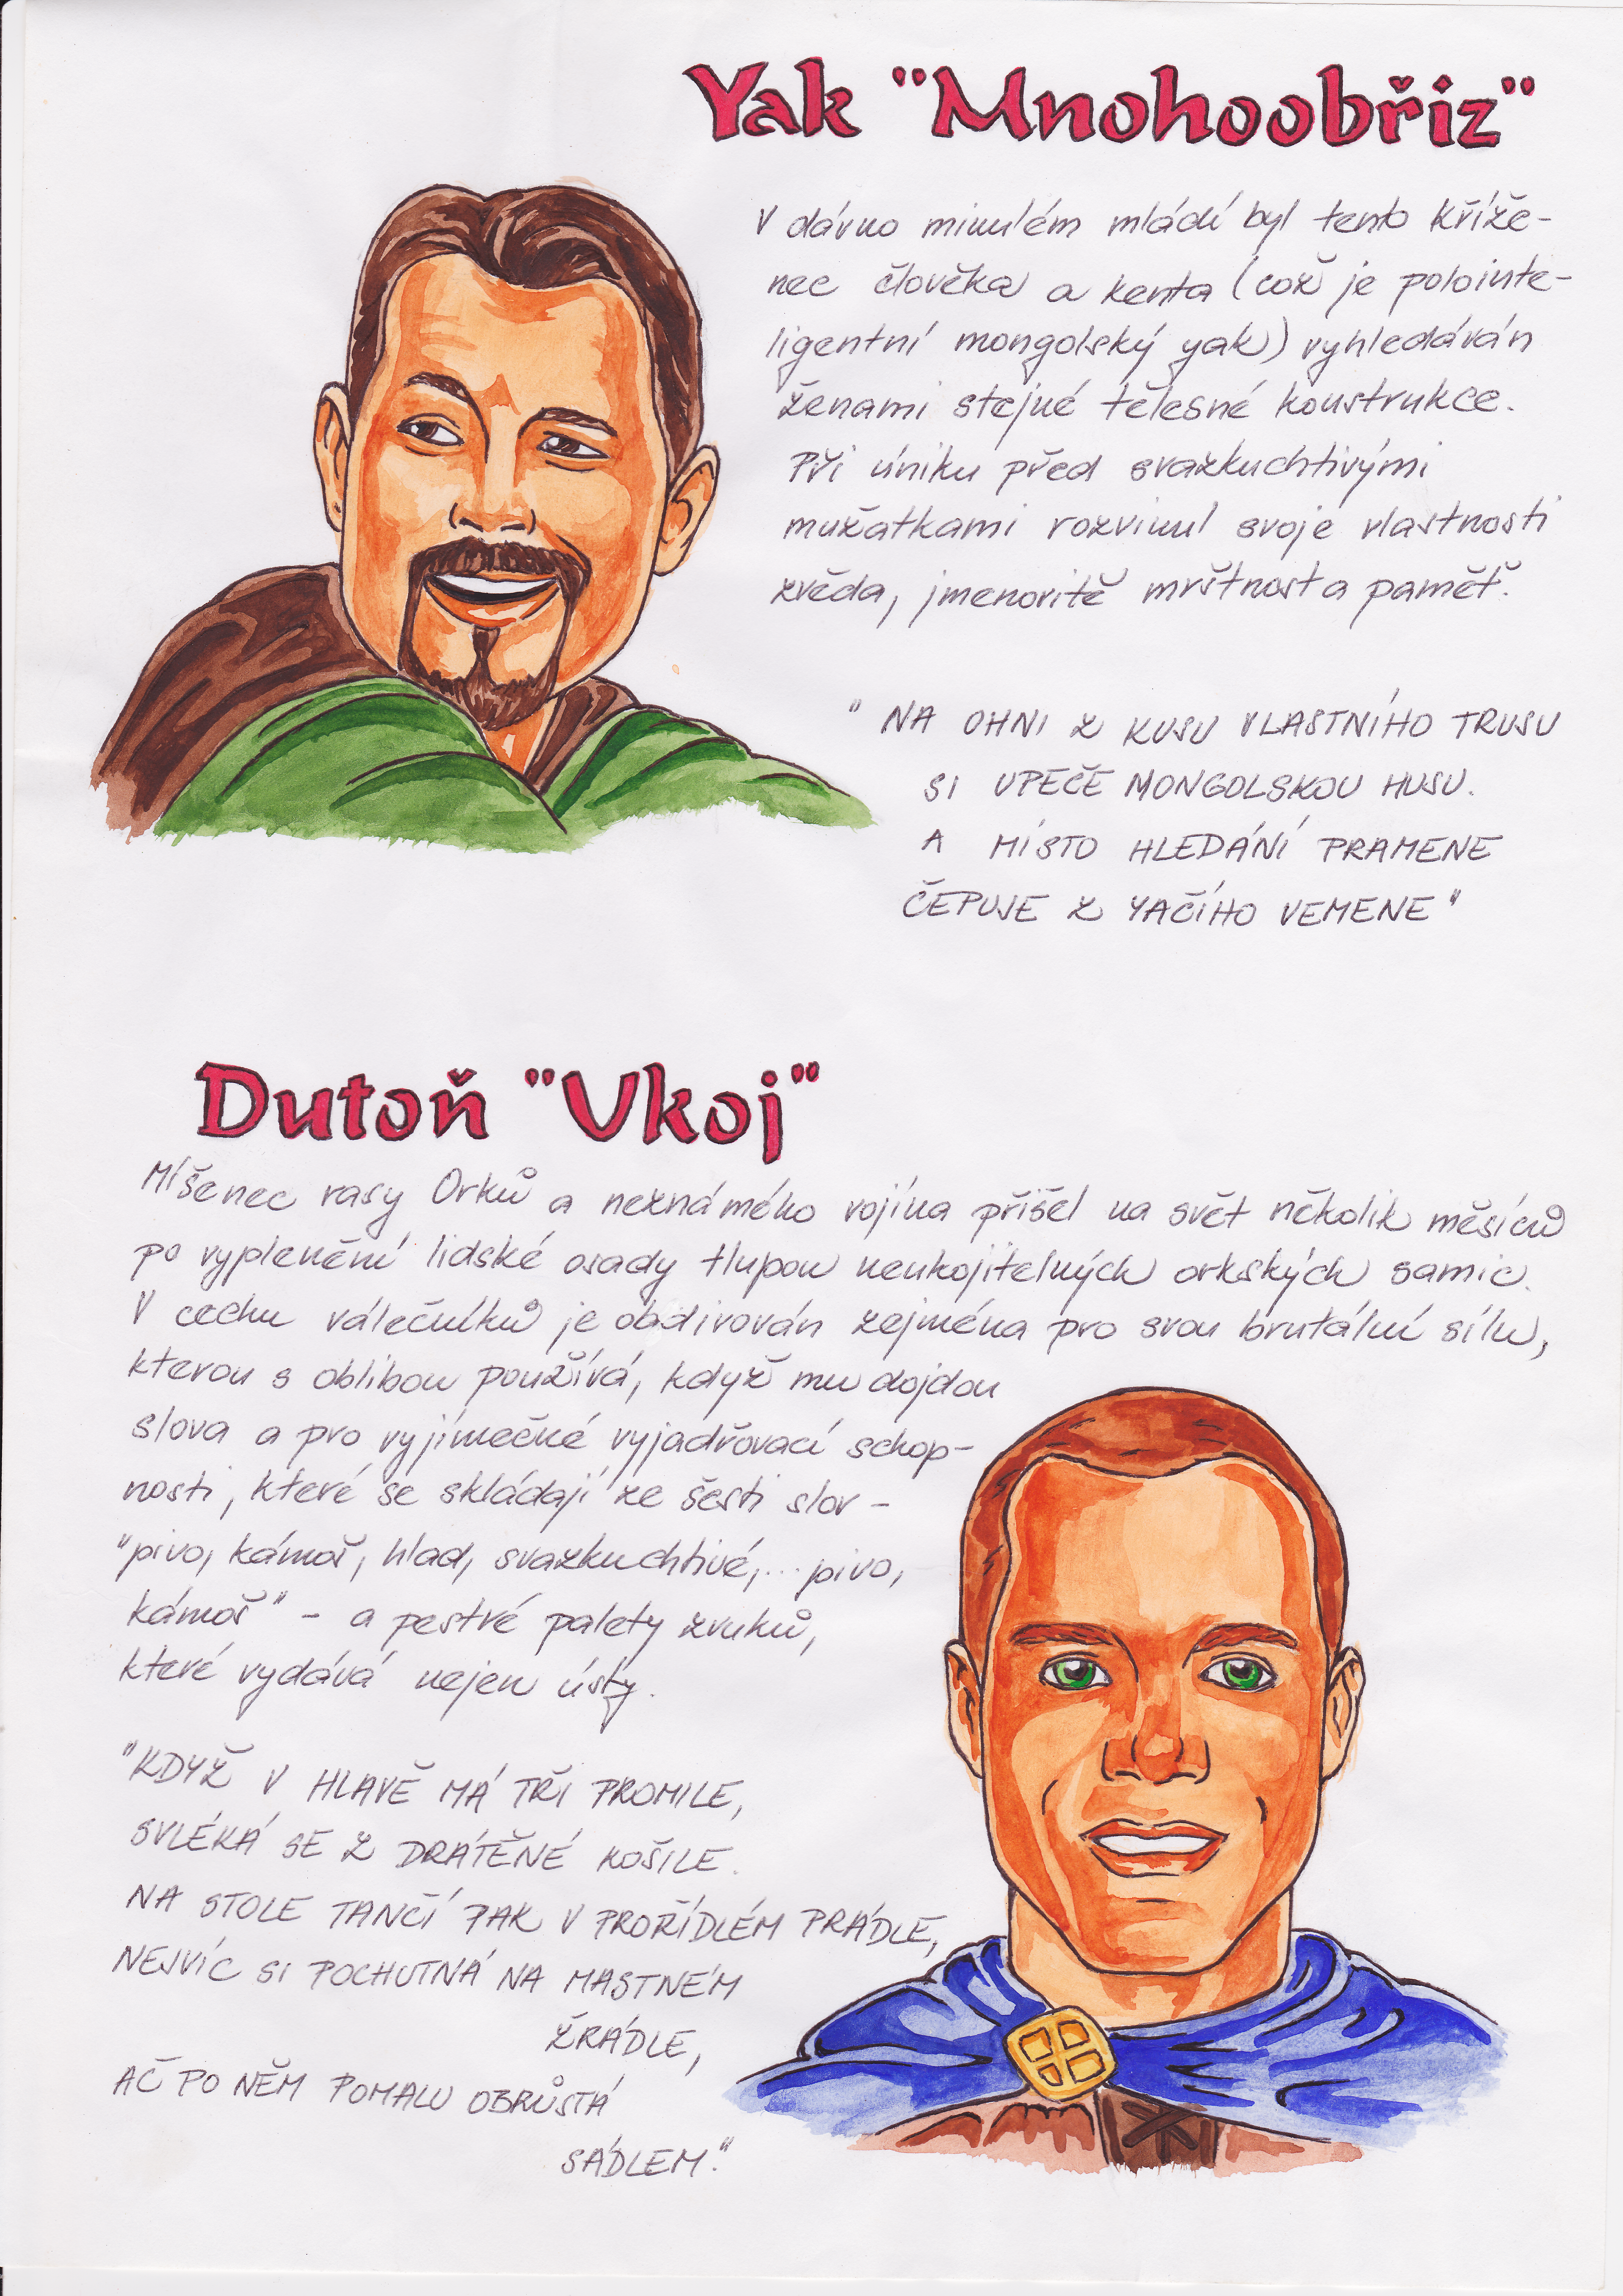 Yak "Mnohoobřiz"
V dávno minulém mládí byl tento kříže-
nec člověka a kenta (což je polointe-
ligentní mongolský yak) vyhledáván
ženami stejné tělesné konstrukce.
Při úniku před svazkuchtivými
mužatkami rozvinul svoje vlastnosti
zvěda, jmenovitě mrštnost a paměť.
"NA OHNI Z KUSU VLASTNÍHO TRUSU
SI UPEČE MONGOLSKOU HUSU.
A MÍSTO HLEDÁNÍ PRAMENE
ČEPUJE Z YAČÍHO VEMENE"
Dutoň "Ukoj"
Míšenec rasy Orků a neznámého vojína přišel na svět několik měsíců
po vyplenění lidské osady tlupou neukojitelných orkských samic.
V cechu válečníků je obdivován zejména pro svou brutální sílu,
kterou s oblibou používá, když mu dojdou
slova a pro vyjímečné vyjadřovací schop-
nosti, které se skládají ze šesti slov -
"pivo, kámoš, hlad, svazkuchtivé,... pivo,
kámoš" - a pestré palety zvuků,
které vydává nejen ústy.
"KDYŽ V HLAVĚ MÁ TŘI PROMILE,
SVLÉKÁ SE Z DRÁTĚNÉ KOŠILE.
NA STOLE TANČÍ PAK V PROŘÍDLÉM PRÁDLE,
NEJVÍC SI POCHUTNÁ NA MASTNÉM
ŽRÁDLE,
AČ PO NĚM POMALU OBRŮSTÁ
SÁDLEM."